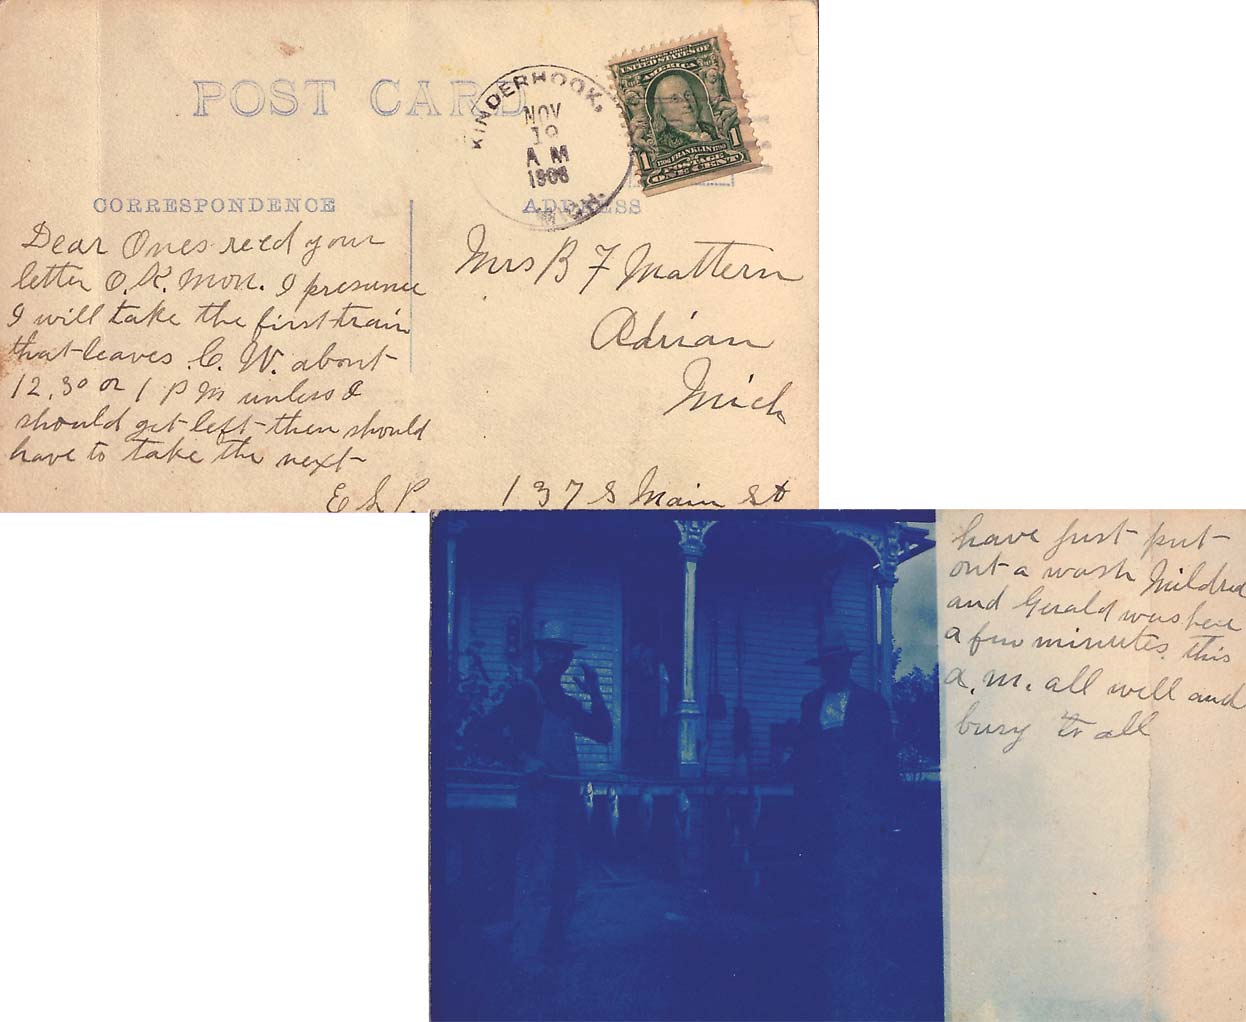 POST CARD
KINDERHOOK,
NOV
19
A M
1906
MICH.
SERIES 1902
UNITED STATES OF
AMERICA
1
1
1706 FRANKLIN 1790
POSTAGE
ONE CENT
CORRESPONDENCE
ADDRESS
Dear Ones rec'd your
letter O.K. Mon. I presume
I will take the first train
that leaves C. W. about
12.30 or 1 P M unless I
should get left then should
have to take the next
E L P.
Mrs B F Mattern
Adrian
Mich
137 S Main St
have just put
out a wash Mildred
and Gerald was here
a few minutes this
a.m. all well and
busy to all